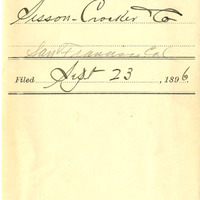 Sisson-Crocker Co
San Francisco Cal
Filed Sept 23, 1896.